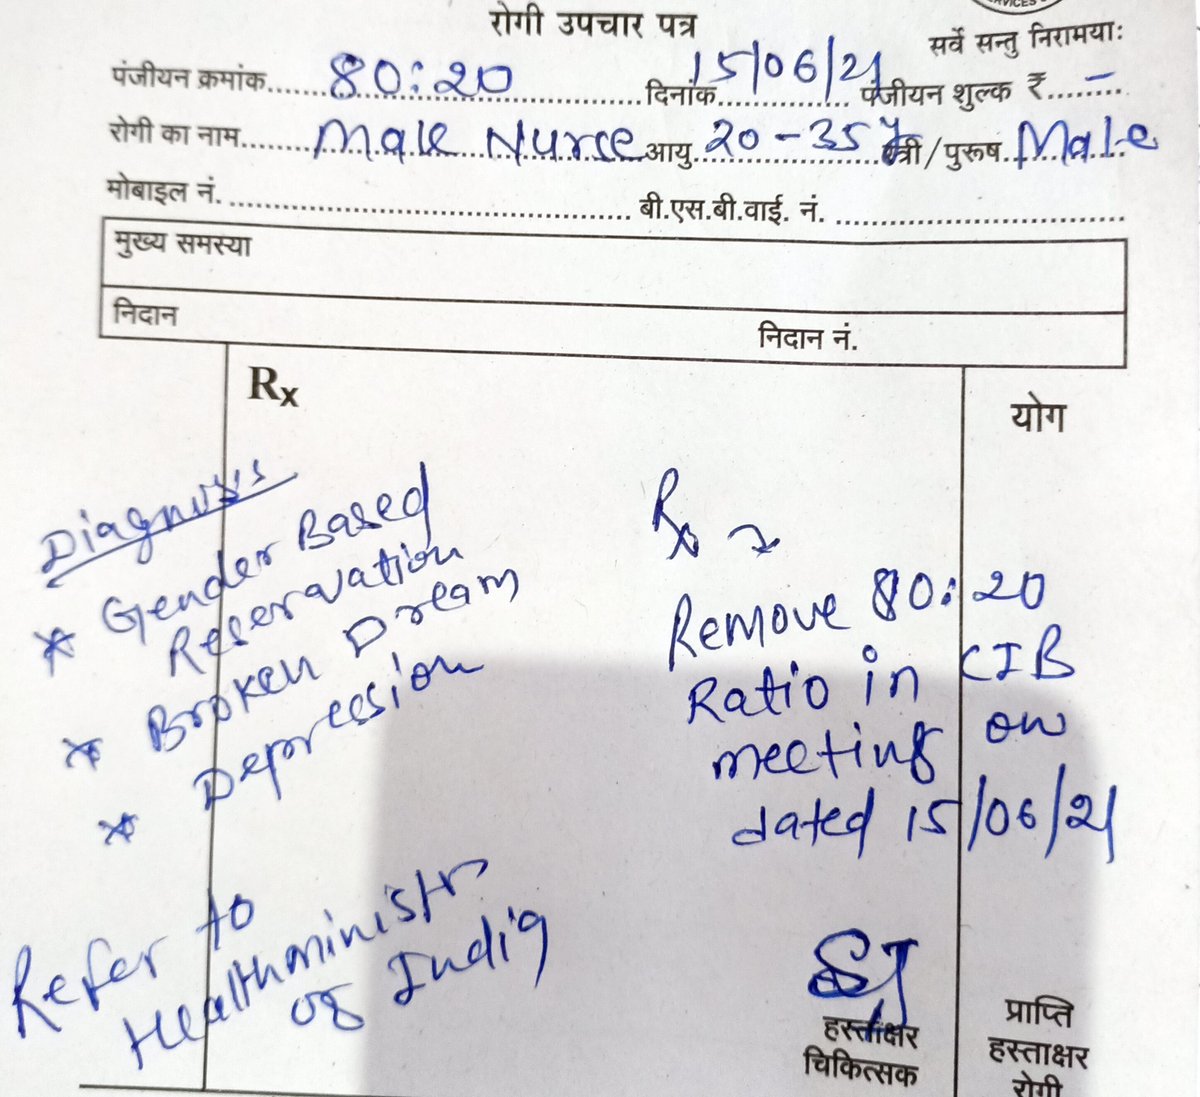 SERVICES
रोगी उपचार पत्र
सर्वे सन्तु निरामयाः
पंजीयन क्रमांक 80:20 दिनांक 15/06/21 पंजीयन शुल्क ₹ –
रोगी का नाम Male Nurse आयु 20-35 y स्त्री/पुरूष Male
मोबाइल नं. बी.एस.बी.वाई. नं.
मुख्य समस्या
निदान निदान नं.
Rx
योग
Diagnosis
* Gender Based
Reservation
* Broken Dream
* Depression
Refer to
Healthministr
of India
Rx
Remove 80:20
Ratio in CIB
meeting on
dated 15/06/21
हस्ताक्षर
चिकित्सक
प्राप्ति
हस्ताक्षर
रोगी